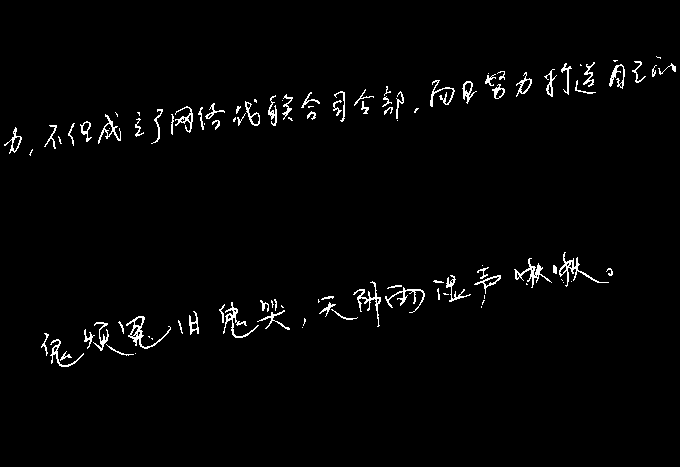 力,不但成立了网络战联合司令部,而且努力打造自己的
鬼烦冤旧鬼哭,天阴雨湿声啾啾。